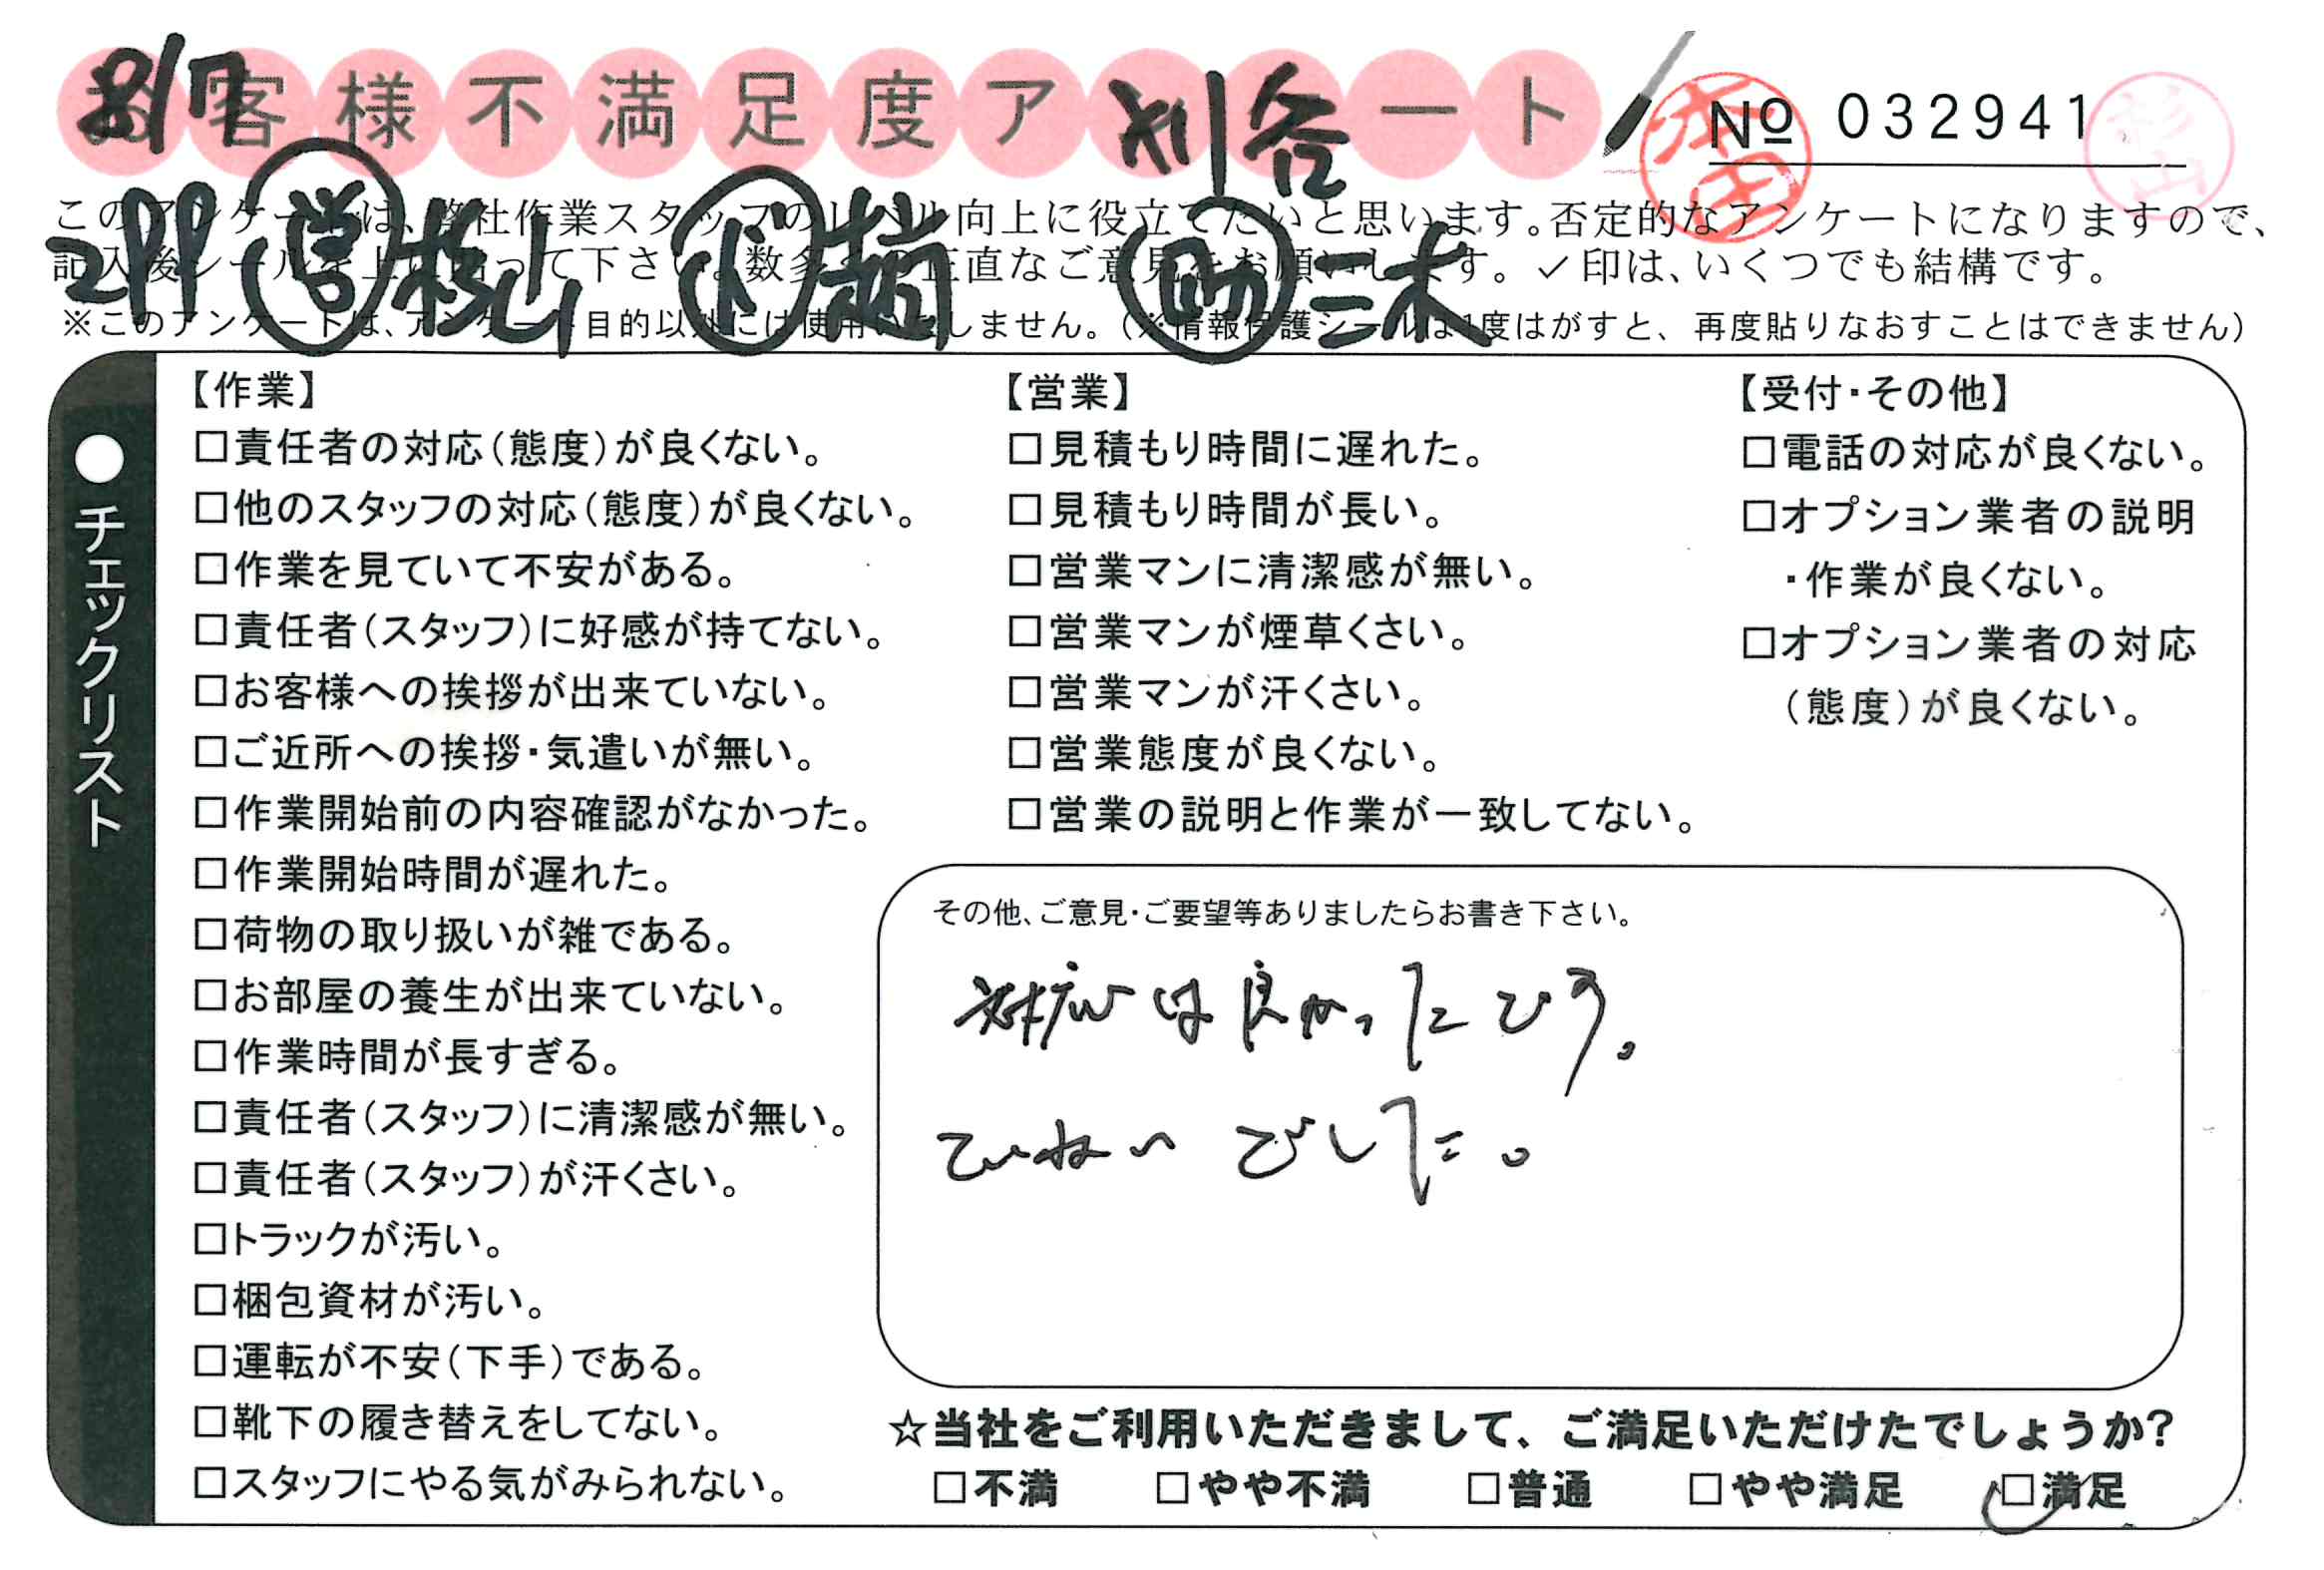 お客様不満足度アンケート
8/7 刈谷
№ 032941
本田
杉山
2PP 営 杉山 ド 趙 助 三木
このアンケートは、弊社作業スタッフのレベル向上に役立てたいと思います。否定的なアンケートになりますので、
記入後シールを上に貼って下さい。数多くの正直なご意見をお願いします。✓印は、いくつでも結構です。
※このアンケートは、アンケート目的以外には使用いたしません。(※情報保護シールは1度はがすと、再度貼りなおすことはできません)
●チェックリスト
【作業】
□責任者の対応(態度)が良くない。
□他のスタッフの対応(態度)が良くない。
□作業を見ていて不安がある。
□責任者(スタッフ)に好感が持てない。
□お客様への挨拶が出来ていない。
□ご近所への挨拶・気遣いが無い。
□作業開始前の内容確認がなかった。
□作業開始時間が遅れた。
□荷物の取り扱いが雑である。
□お部屋の養生が出来ていない。
□作業時間が長すぎる。
□責任者(スタッフ)に清潔感が無い。
□責任者(スタッフ)が汗くさい。
□トラックが汚い。
□梱包資材が汚い。
□運転が不安(下手)である。
□靴下の履き替えをしてない。
□スタッフにやる気がみられない。
【営業】
□見積もり時間に遅れた。
□見積もり時間が長い。
□営業マンに清潔感が無い。
□営業マンが煙草くさい。
□営業マンが汗くさい。
□営業態度が良くない。
□営業の説明と作業が一致してない。
【受付・その他】
□電話の対応が良くない。
□オプション業者の説明
・作業が良くない。
□オプション業者の対応
(態度)が良くない。
その他、ご意見・ご要望等ありましたらお書き下さい。
対応は良かったです。
ていねいでした。
☆当社をご利用いただきまして、ご満足いただけたでしょうか?
□不満 □やや不満 □普通 □やや満足 □満足